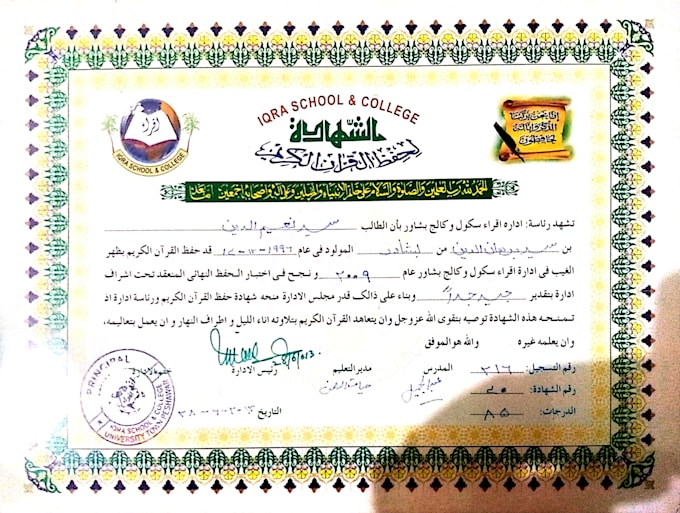 IQRA SCHOOL & COLLEGE
الشهادة
لحفظ القرآن الكريم
اقرأ
IQRA SCHOOL & COLLEGE
إنا نحن نزلنا
الذكر وإنا له
لحافظون
الحمد لله رب العلمين والصلوة والسلام على خاتم الانبياء والمرسلين وعلى آله واصحابه اجمعين اما بعد
تشهد رئاسة: اداره اقراء سكول وكالج بشاور بأن الطالب سيد نعيم الدين
بن سيد برهان الدين من پشاور المولود فى عام ١٩٩٦-١٢- قد حفظ القرآن الكريم بظهر
الغيب فى ادارة اقراء سكول وكالج بشاور عام ٢٠٠٩ و نجح فى اختبار الحفظ النهائى المنعقد تحت اشراف
ادارة بتقدير جيد جداً وبناء على ذالك قدر مجلس الادارة منحه شهادة حفظ القرآن الكريم ورئاسة ادارة اذ
تمنحه هذه الشهادة توصيه بتقوى الله عزوجل وان يتعاهد القرآن الكريم بتلاوته اناء الليل و اطراف النهار و ان يعمل بتعاليمه،
وان يعلمه غيره والله هو الموفق
رقم التسجيل: ٢١٦ المدرس مدير التعليم رئيس الادارة ختم الادارة
رقم الشهادة: ٤٠
الدرجات: ٨٥ التاريخ
PRINCIPAL
IQRA SCHOOL & COLLEGE
UNIVERSITY TOWN PESHAWAR